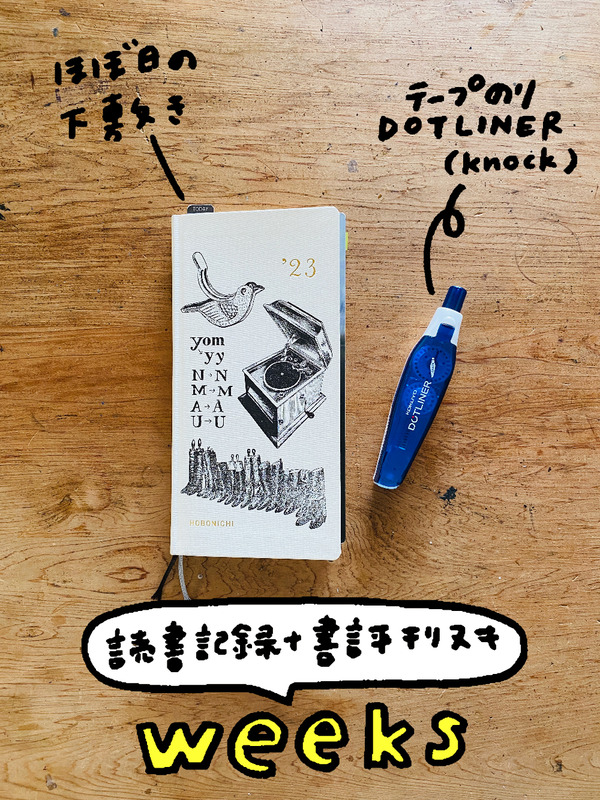 ほぼ日の
下敷き
テープのり
DOTLINER
(knock)
TODAY
'23
yom
↘yy
N→N
M→M
A→A
U→U
HOBONICHI
KOKUYO
DOTLINER
読書記録+書評キリヌキ
weeks